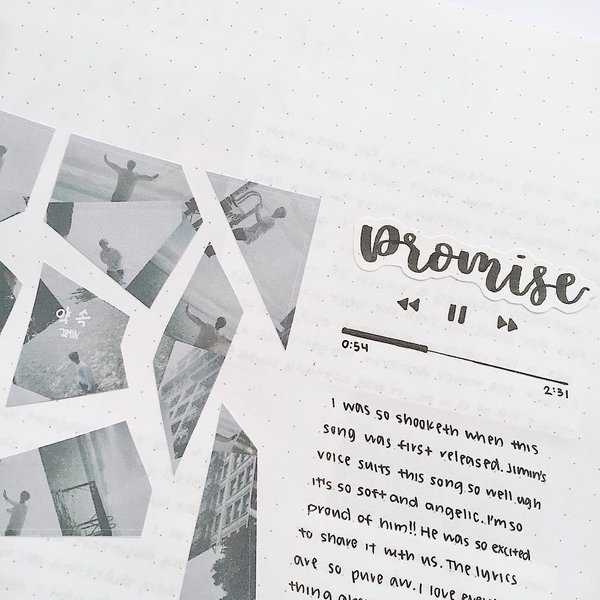 약속
JIMIN
promise
0:54
2:31
I was so shooketh when this
song was first released. Jimin's
voice suits this song so well ugh
it's so soft and angelic. I'm so
proud of him!! He was so excited
to share it with us. The lyrics
are so pure aw. I love
thing